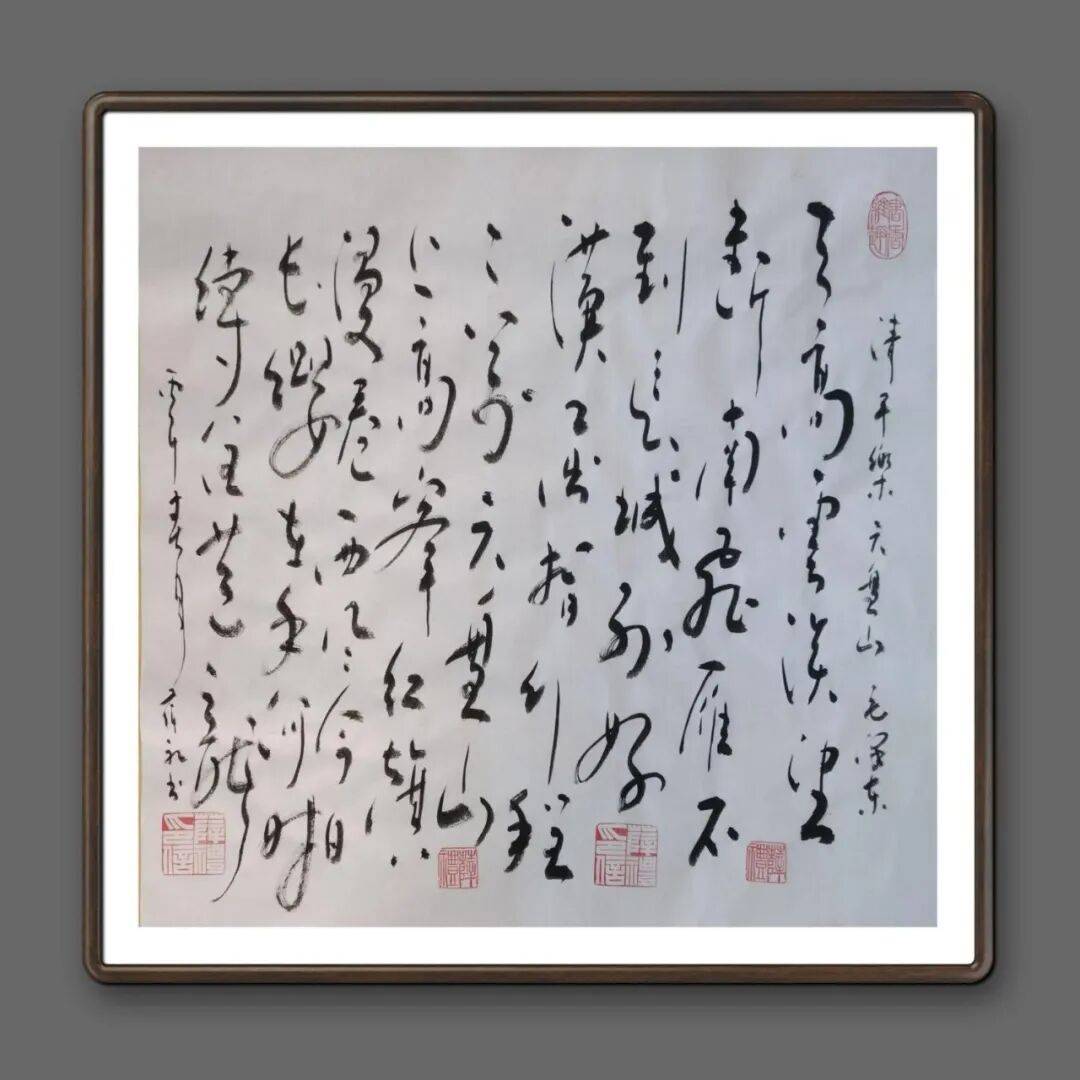 清平樂 六盤山 毛澤東
天高雲淡望
斷南飛雁不
到長城非好
漢屈指行程
二萬六盤山
上高峯紅旗
漫卷西风今日
長纓在手何時
縛住蒼龍
年春月 薛礼书
薛禮
薛禮